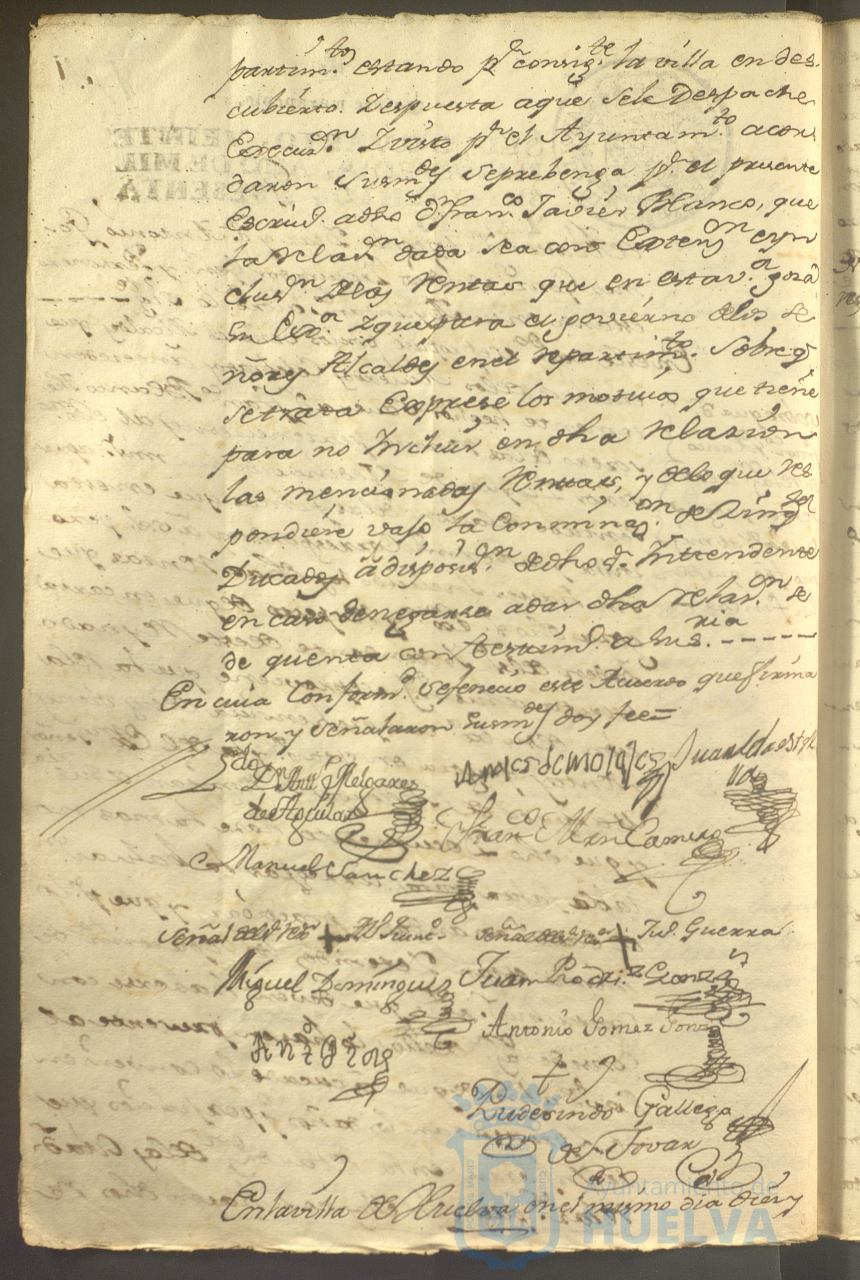 partim.tos estando p.r consig.te la villa en des-
cubierto. Respuesta aque sele Despache
Execuz.on Y visto p.r el Ayuntam.to acor-
daron susm.des seprebenga p.r el presente
Escriu.o adho d.n Fran.co Javiér Blanco, que
la relaz.on dada sea con Extenz.on eyn
clus.on delas Rentas que en esta v.a goza
su Ex.a Y que para el govierno delos se
ñores Alcaldes en el repartim.to sobre q.e
setrata Exprese los motivos que tiene
para no Incluir en dha relazion
las mencionadas Rentas, y delo que res-
pondiére vajo la Conminaz.on de
Ducados à disposiz.on de dho s.r Intendente
en caso denegarse a dar dha relaz.on se
de quenta con Testim.o a su s.ria - - - - -
En cuia Conform.d sefenecio este Acuerdo quefirma
ron y señalaron susm.des doy fee=
D.n Ant.o Melgarejo
de Aguilar
Juan
Fran.co Mrn Camero
Manuel Sanchez
Señal del Rex.or + señal del Rex.or + Jul. Guerra
Miguel Dominguez Juan Rodri.z Gonz.s
Antonio Gomez
Rudesindo Gallego
de Tovar
Enla villa de Huelva en el mismo dia diez y
Ayuntamiento de
HUELVA